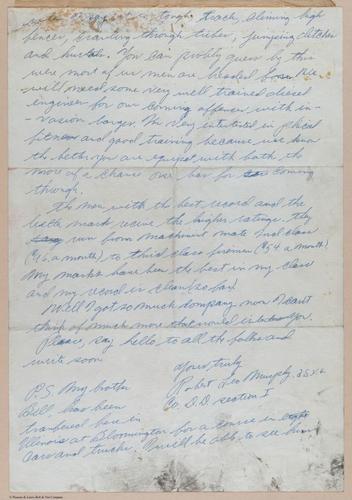 tough track, climing high
fences, crawling through tubes, jumping ditches
and hurtels. You can probly guess by this
were most of us men are headed for. We
will need some very well trained diesel
engineer for our coming offensive with in-
vasion barges. I'm very intersted in phical
fitness and good training because we know
the better you are equipet with both, the
more of a chance one has for coming
through.
The men with the best record and the
best mark receive the higher ratings, they
run from machinest mate 2nd class
($96 a month) to third class firemen ($54 a month)
My marks have been the best in my class
and my record is clean so far.
Well I got so much company now I can't
think of much more that would interest you.
Please, say hello, to all the folks and
write soon
Yours truly
Robert Leo Murphy, A.S. V-6
Co. D.D. section I
P.S. My brother
Bill, has been
tranfered here in
Illinois at Bloomington for a course in
cars and trucks. I will be able to see him.